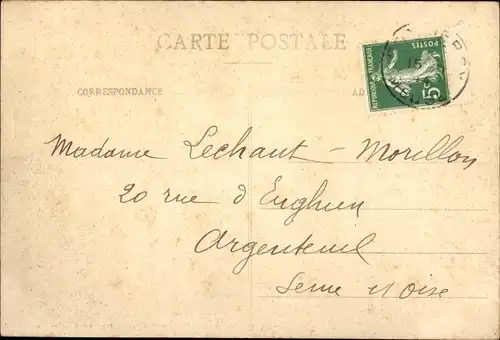 CARTE POSTALE
CORRESPONDANCE
AD
REPUBLIQUE FRANÇAISE
POSTES
5c
15
Madame Lechaut - Morillon
20 rue d'Enghien
Argenteuil
Seine et Oise